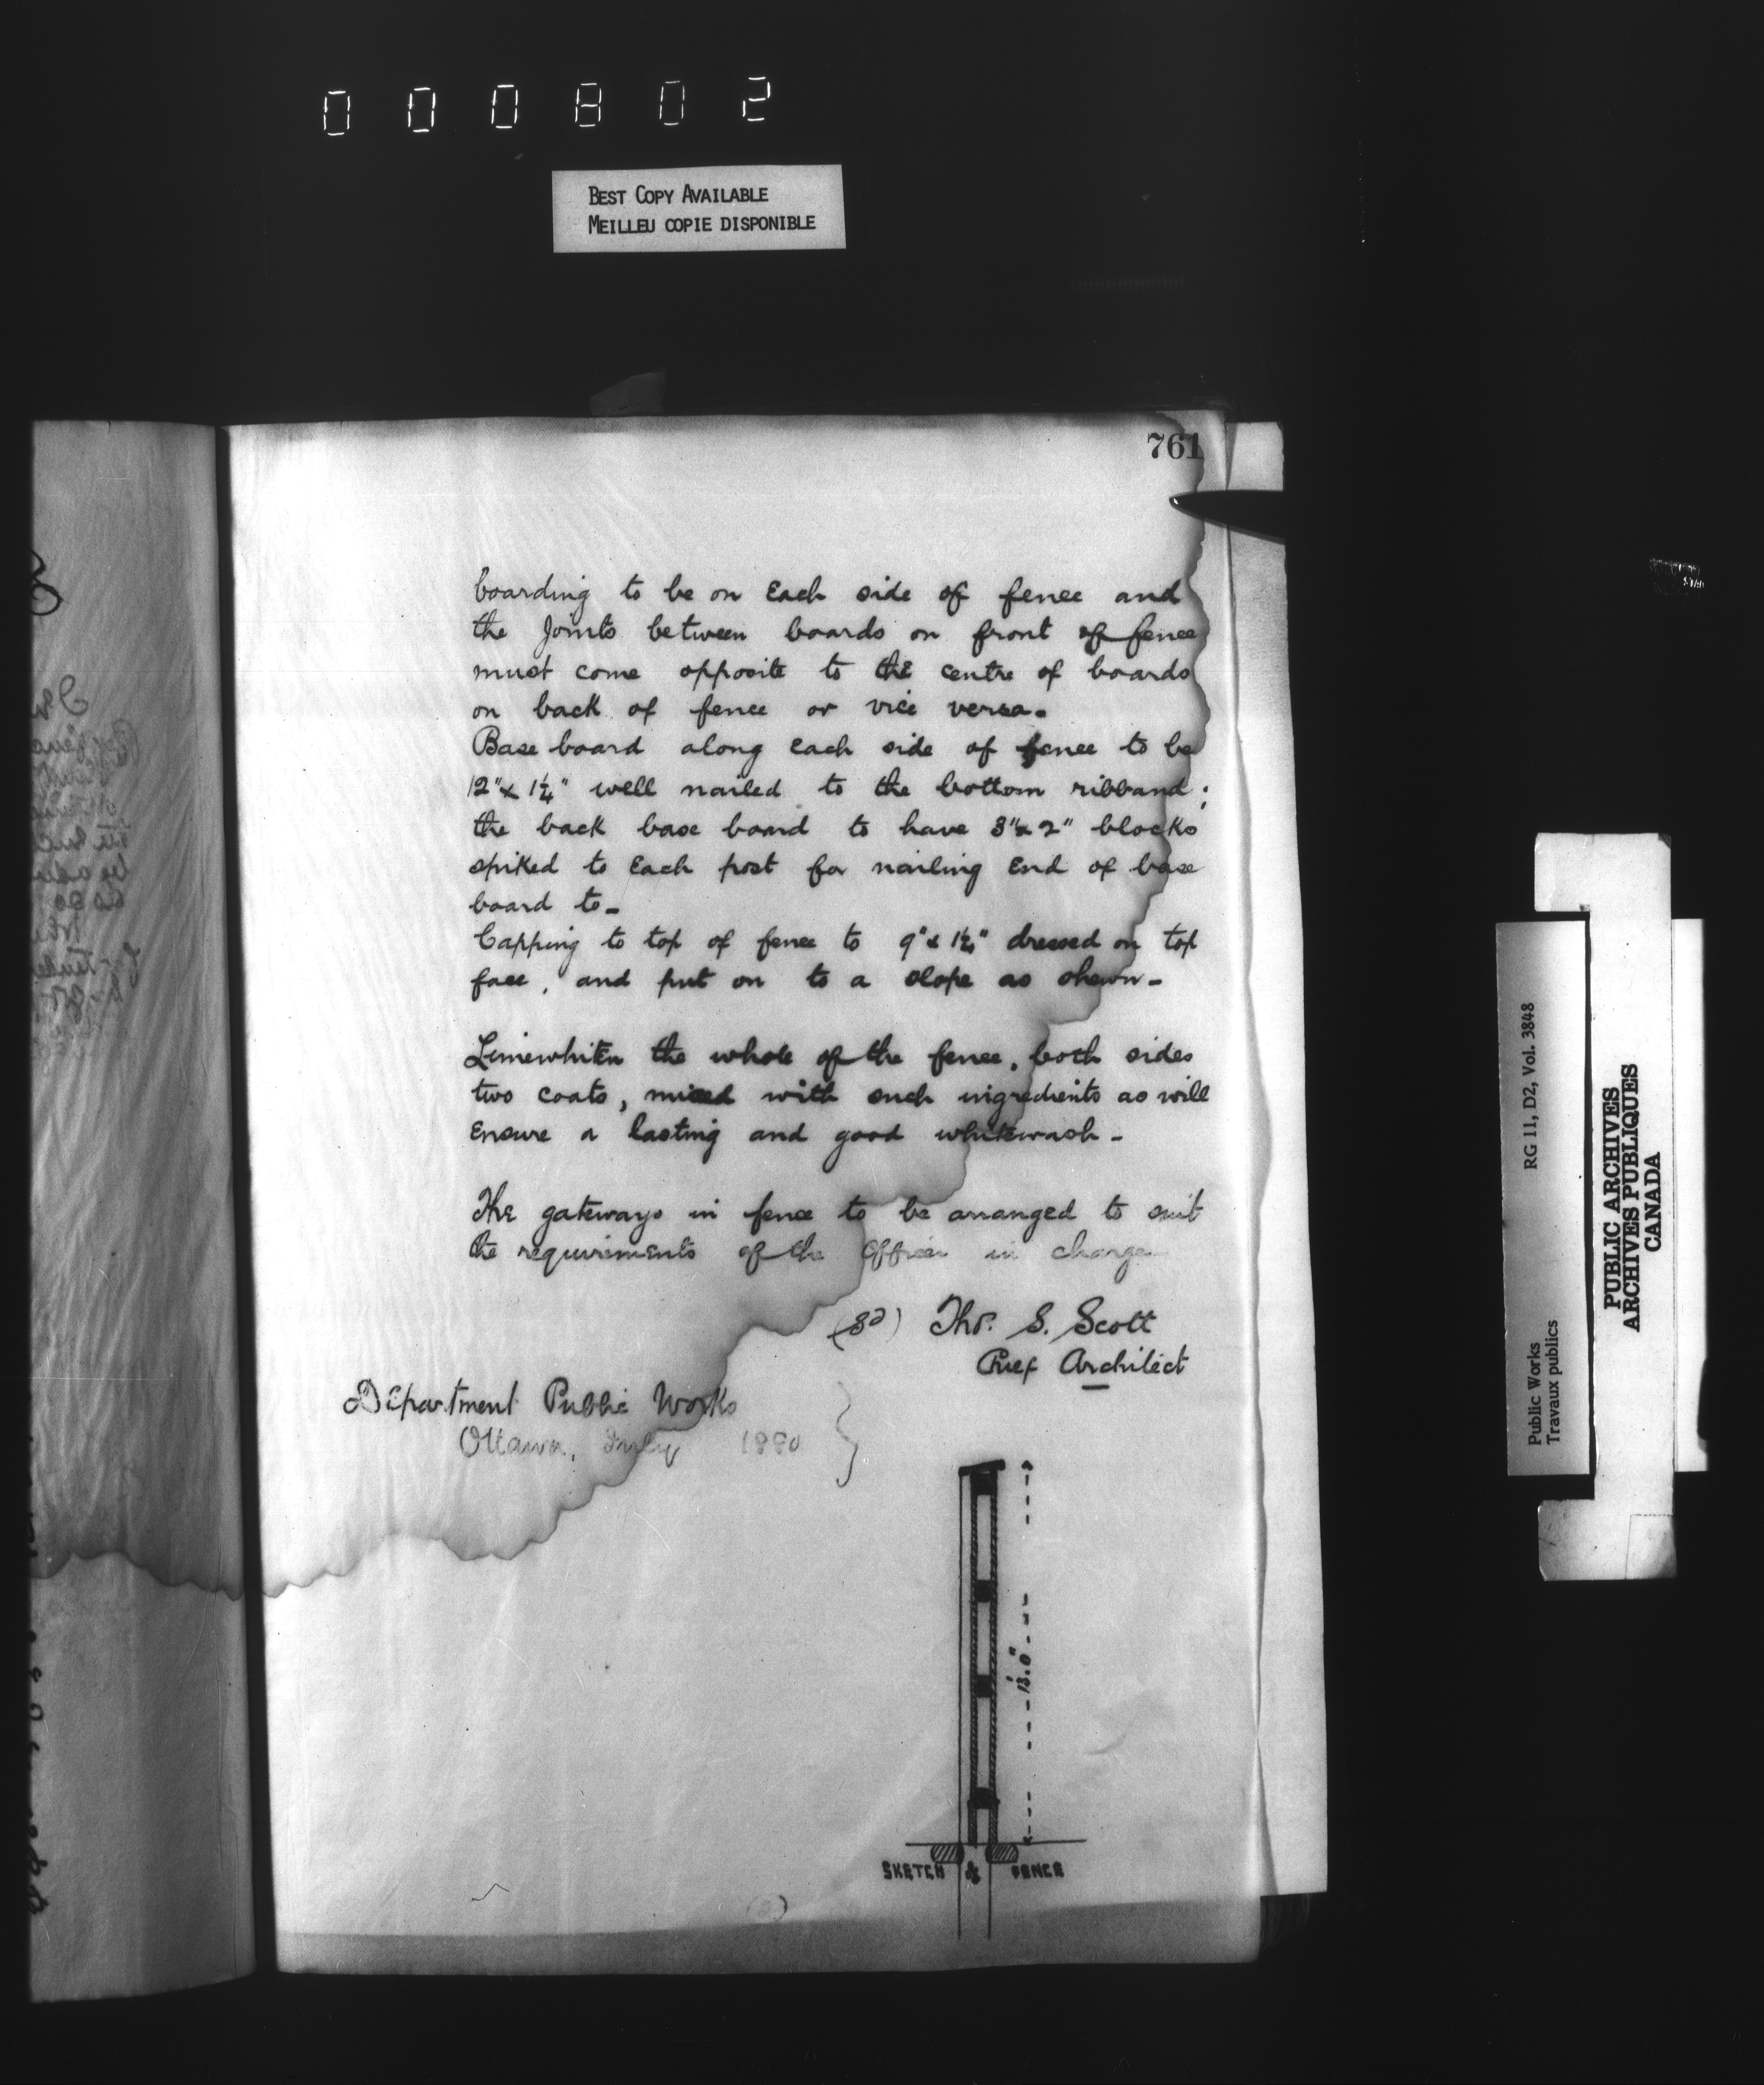 000802
BEST COPY AVAILABLE
MEILLEU COPIE DISPONIBLE
761
boarding to be on Each side of fence and
the Joints between boards on front of fence
must come opposite to the centre of boards
on back of fence or vice versa.
Base board along Each side of fence to be
12" x 1¼" well nailed to the bottom ribband;
the back base board to have 3" x 2" blocks
spiked to Each post for nailing End of base
board to -
Capping to top of fence to 9" x 1¼" dressed on top
face, and put on to a slope as shewn -
Limewhiten the whole of the fence, both sides
two coats, mixed with such ingredients as will
Ensure a lasting and good whitewash -
The gateways in fence to be arranged to suit
the requirements of the Officer in charge
(Sd) Thos. S. Scott
Chief Architect
Department Public Works
Ottawa, July 1880
13'.0"
SKETCH of FENCE
RG 11, D2, Vol. 3848
Public Works
Travaux publics
PUBLIC ARCHIVES
ARCHIVES PUBLIQUES
CANADA